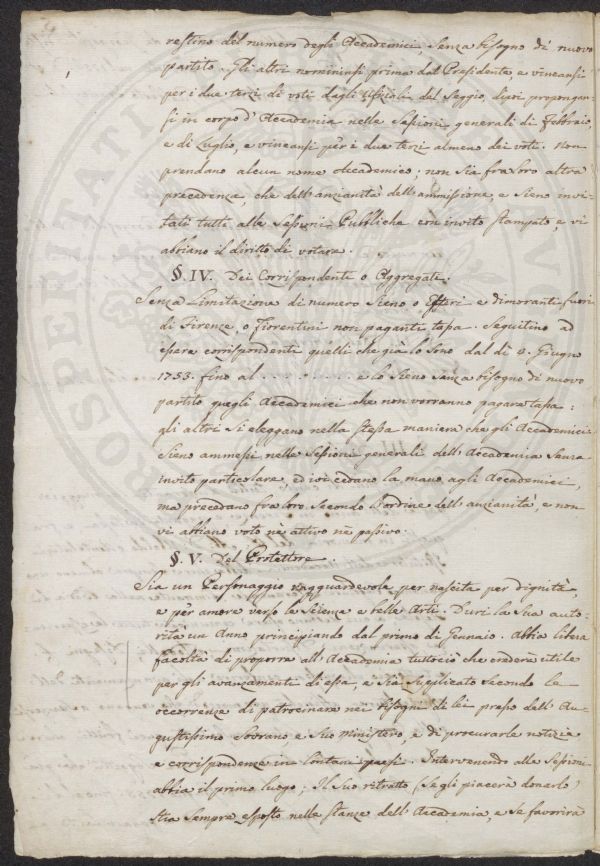 restino del numero degli Accademici, senza bisogno di nuovo
partito. Gli altri nomininsi prima dal Presidente, e vincansi
per i due terzi di voti dagli Ufiziali del Seggio, di poi propongan-
si in corpo d'Accademia nelle Sessioni generali di Febbraio,
e di Luglio, e vincansi per i due terzi almeno dei voti. Non
prendano alcun nome Accademico; non sia fra loro altra
precedenza, che dell'anzianità dell'ammissione, e sieno invi-
tati tutti alle Sessioni Pubbliche con invito stampato, e vi
abbiano il diritto di votare.
§. IV. Dei Corrispondenti o Aggregati.
Senza Limitazione di numero sieno o Esteri e dimoranti fuori
di Firenze, o Fiorentini non paganti tassa. Seguitino ad
essere corrispondenti quelli che già lo sono dal dì 2. Giugno
1753. fino al . . . . . . . . . e lo sieno senza bisogno di nuovo
partito quegli Accademici che non vorranno pagare tassa:
gli altri si eleggano nella stessa maniera che gli Accademici.
Sieno ammessi nelle Sessioni generali dell'Accademia senza
invito particolare, ed ivi cedano la mano agli Accademici,
ma precedano fra loro secondo l'ordine dell'anzianità, e non
vi abbiano voto nè attivo nè passivo.
§. V. Del Protettore.
Sia un Personaggio ragguardevole per nascita per dignità,
e per amore verso le Scienze e belle Arti. Duri la sua auto-
rità un Anno principiando dal primo di Gennaio. Abbia libera
facoltà di proporre all'Accademia tuttociò che crederà utile
per gli avanzamenti di essa, e sia supplicato secondo le
occorrenze di patrocinare nei bisogni di lei presso dell'Au-
gustissimo Sovrano e suo Ministero, e di procurarle notizie
e corrispondenze in lontani paesi. Intervenendo alle Sessioni
abbia il primo luogo; Il suo ritratto (se gli piacerà donarlo)
stia sempre esposto nelle stanze dell'Accademia, e se favorirà
PROSPERITATI